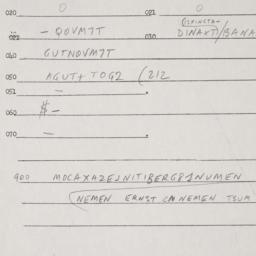 020 0 021 0
022 - QOVM7T 030 DINAXT/BANA
040 GUTNOVM7T
050 AGUT+ TOG2 (212
051 -
060 $ -
070 -
900 MOCAXAZEJNITIBERG81NUMEN
(NEMEN ERNST CA NEMEN TSUM